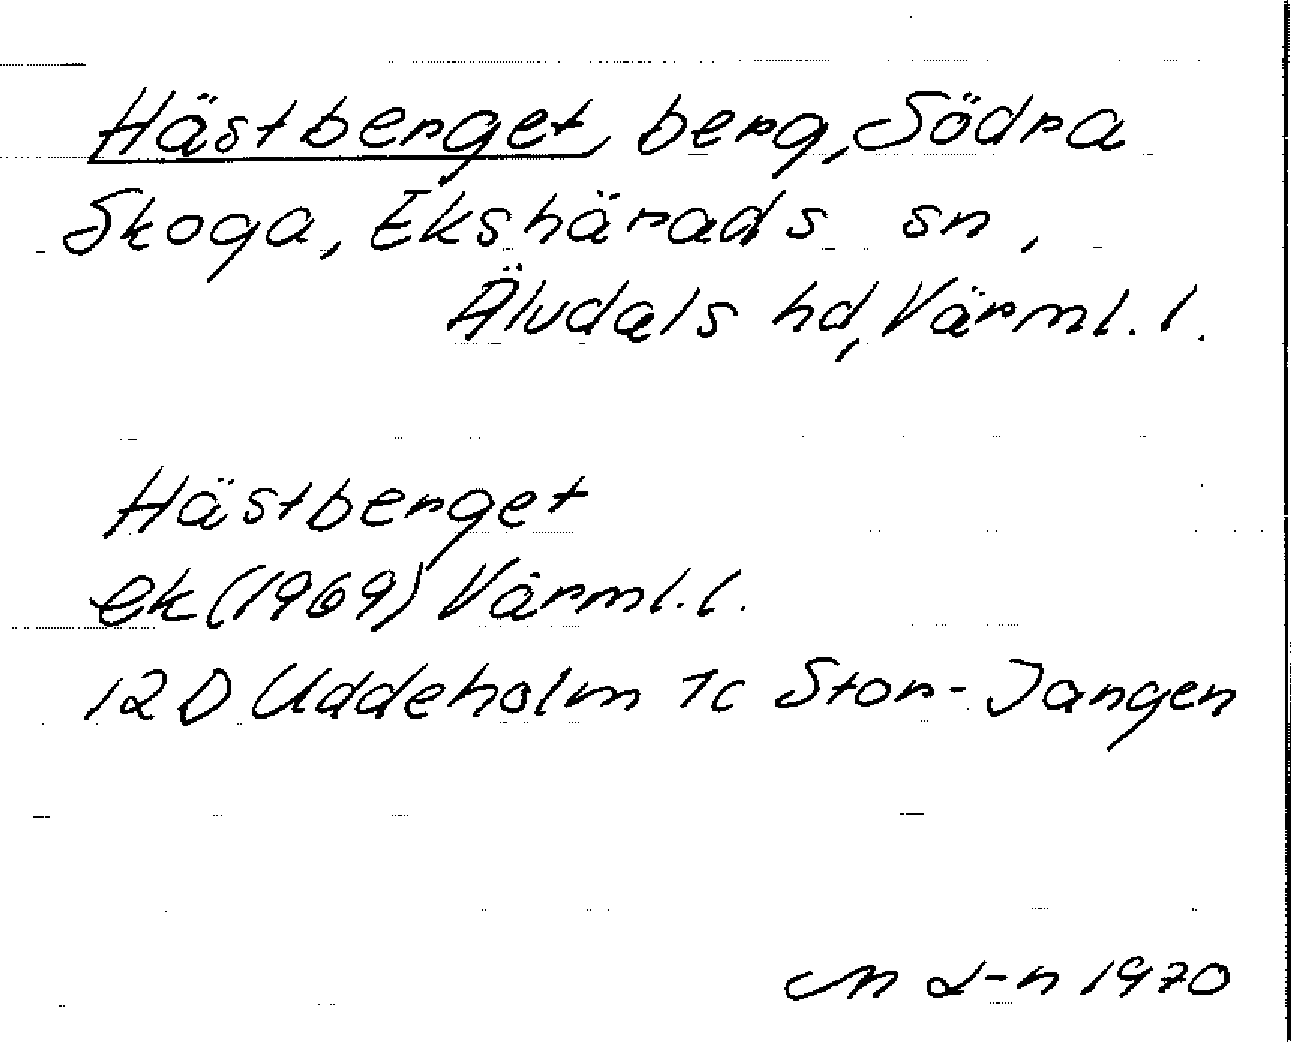 Hästberget, berg, Södra
Skoga, Ekshärads sn,
Älvdals hd, Värml. l.
Hästberget
ek (1969) Värml. l.
12 D Uddeholm 1c Stor-Jangen
1970